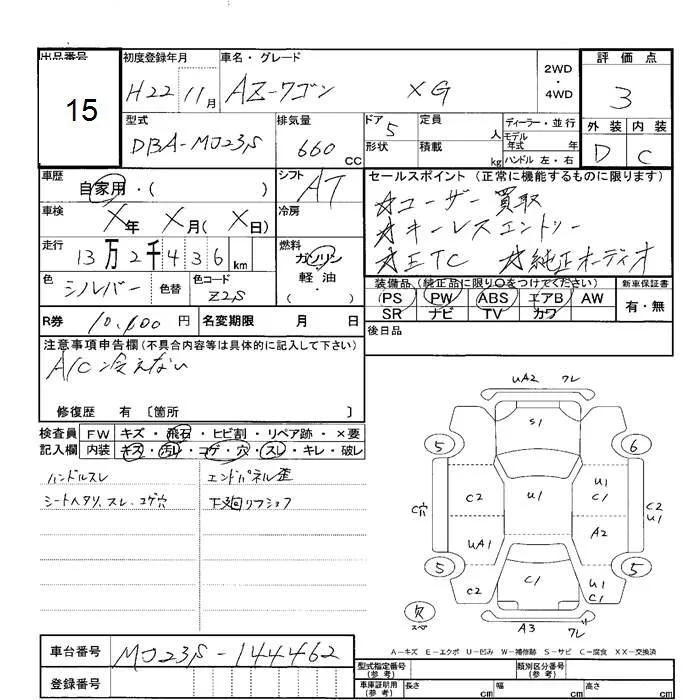 出品番号
15
初度登録年月
H22年 11月
車名・グレード
AZ-ワゴン XG
2WD
・
4WD
評価点
3
外装 内装
D C
型式
DBA-MJ23S
排気量
660 CC
ドア 5
形状
定員 人
積載 kg
ディーラー・並行
モデル年式 年式
ハンドル 左・右
車歴
自家用・( )
シフト AT
セールスポイント (正常に機能するものに限ります)
☆ユーザー買取
☆キーレスエントリー
☆ETC ☆純正オーディオ
車検
X年 X月( X日)
冷房
走行
13万2千436km
燃料
ガソリン
軽油・
( )
色
シルバー
色替
色コード
Z2S
装備品 (純正品に限り○をつけてください)
PS PW ABS エアB AW
SR ナビ TV カワ
新車保証書
有・無
R券 10,600円
名変期限 月 日
後日品
注意事項申告欄(不具合内容等は具体的に記入して下さい)
A/C冷えない
修復歴 有 〔箇所 〕
検査員 FW キズ・飛石・ヒビ割・リペア跡・×要
記入欄 内装 キズ・汚レ・コゲ・穴・スレ・キレ・破レ
ハンドルスレ
エンドパネル歪
シートヘタリ、スレ、コゲ穴
下廻リサフェフ
UA2 ワレ
S1
5 6
C穴
C2 U1 U1 C1
C2 U1
UA1 A2
5 5
C2 C1 U1 C1
欠 スペ
A3 ワレ
A-キズ E-エクボ U-凹み W-補修跡 S-サビ C-腐食 XX-交換済
車台番号 MJ23S-144462
登録番号
型式指定番号 (参考)
類別区分番号 (参考)
車庫証明用 (参考) 長さ cm 幅 cm 高さ cm